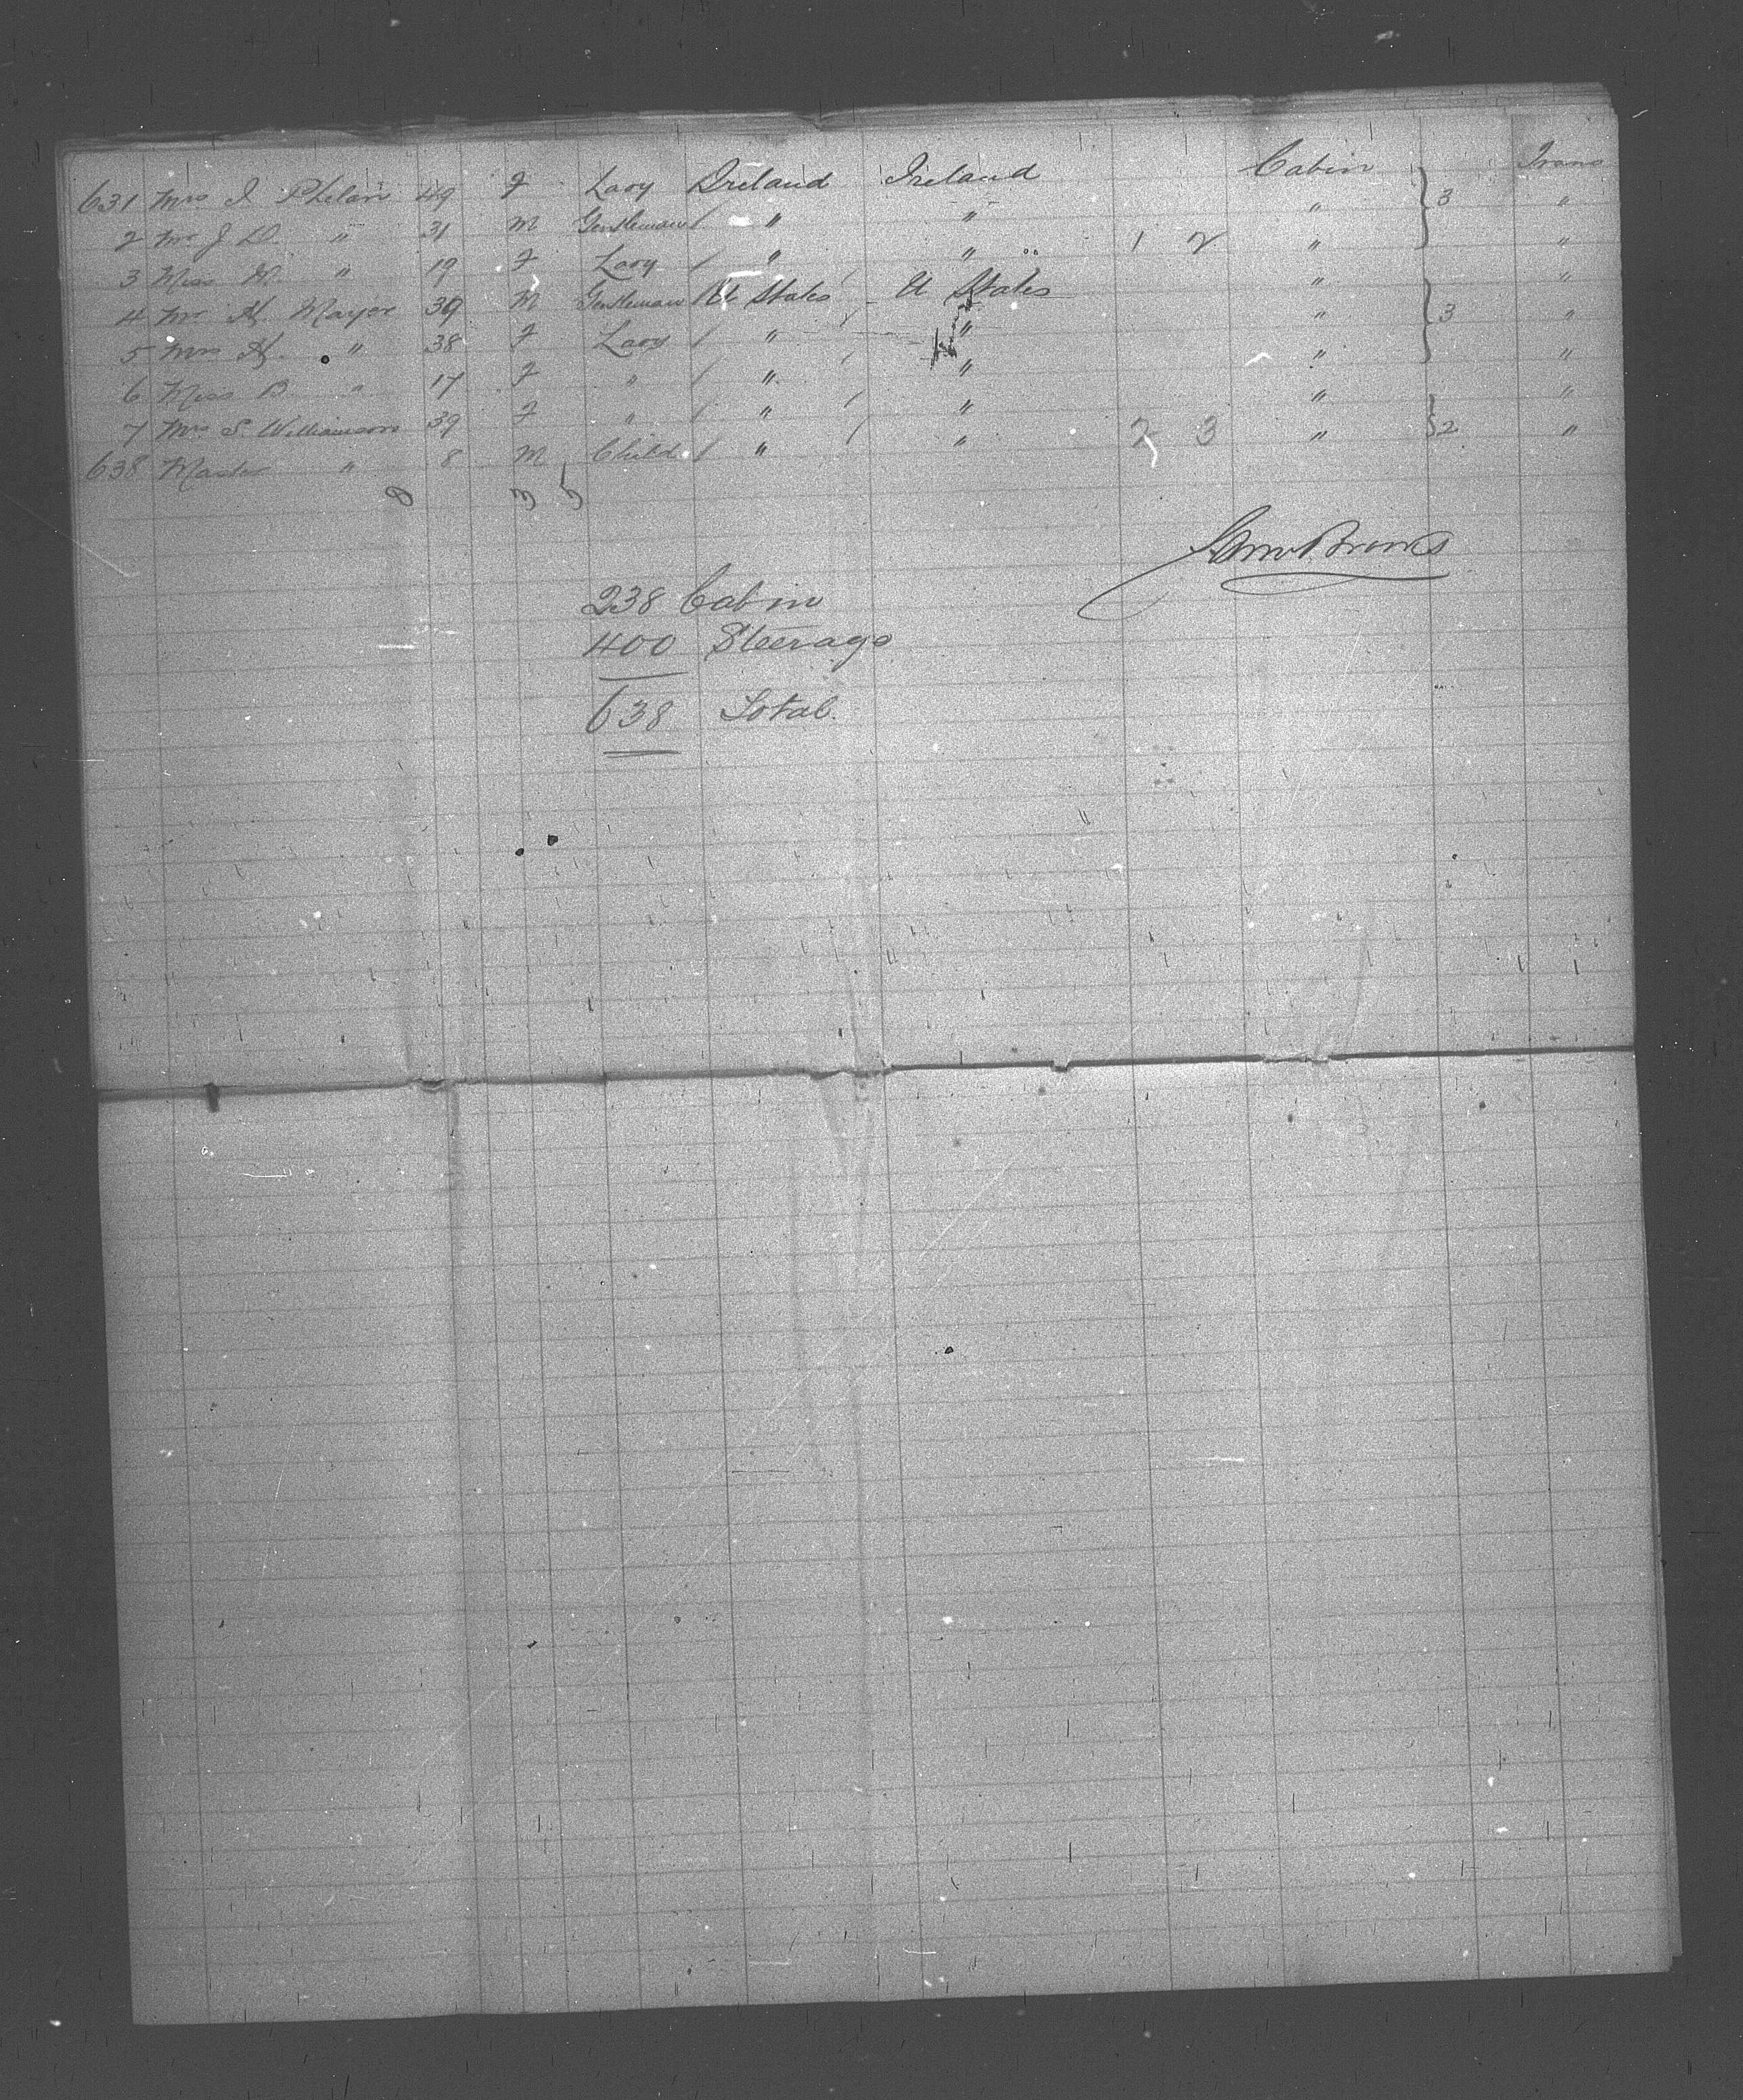 631 Mrs J Phelan 49 F Lady Ireland Ireland Cabin } 3 Trans
2 Mr J D. " 31 M Gentleman / " " " "
3 Miss M. " 19 F Lady / " " 1 2 " "
4 Mr H. Mayer 39 M Gentleman / U States U States " } 3 "
5 Mrs H. " 38 F Lady / " " " "
6 Miss B " 17 F " / " " " "
7 Mrs S. Williamson 39 F " / " " " } 2 "
638 Master " 8 M Child / " " 2 3 " "
8 3 5
238 Cabin
400 Steerage
638 Total.